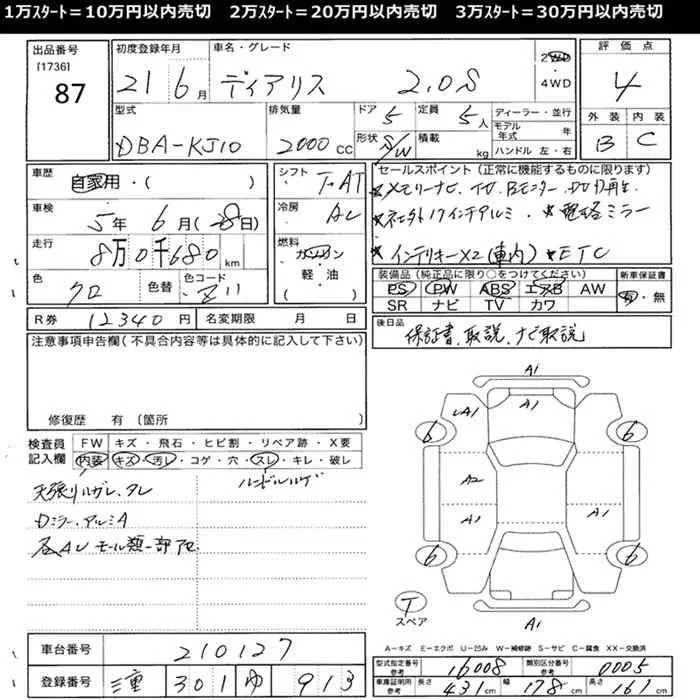 1万ｽﾀｰﾄ＝10万円以内売切　2万ｽﾀｰﾄ＝20万円以内売切　3万ｽﾀｰﾄ＝30万円以内売切
出品番号
[1736]
87
初度登録年月
21年 6月
車名・グレード
ディアリス 2.0S
2WD
4WD
評価点
4
外装 内装
B C
型式
DBA-KJ10
排気量
2000 CC
ドア 5
形状 S/W
定員 5人
積載 kg
ディーラー・並行
モデル年式 年
ハンドル 左・右
車歴
自家用・( )
車検
5年 6月(28日)
走行
8万0千680 km
色
クロ
色替
色コード
Z11
シフト
F AT
冷房
AC
燃料
ガソリン
軽・油
( )
セールスポイント(正常に機能するものに限ります)
★メモリーナビ、TV、Bモニター、DVD再生
★社外17インチアルミ ★電格ミラー
★インテリキーX2(車内) ★ETC
装備品(純正品に限り○をつけてください)
PS PW ABS エアB AW
SR ナビ TV カワ
新車保証書
有・無
R券 12340円
名変期限 月 日
後日品
保証書、取説、ナビ取説
注意事項申告欄(不具合内容等は具体的に記入して下さい)
修復歴 有〔箇所 〕
検査員
記入欄
FW キズ・飛石・ヒビ割・リペア跡・X要
内装 キズ・汚レ・コゲ・穴・スレ・キレ・破レ
天張りハガレ、タレ
Dミラー、アルミA
各AU モール類一部
A1
A1
A1
6
6
A2
A1
A1
6
6
T
スペア
A1
A＝キズ E＝エクボ U＝凹み W＝補修跡 S＝サビ C＝腐食 XX＝交換済
車台番号
210127
登録番号
三重 301 ゆ 913
型式指定番号
参考
16008
類別区分番号
参考
0005
車庫証明用
参考
長さ 431cm 幅 178cm 高さ 161cm